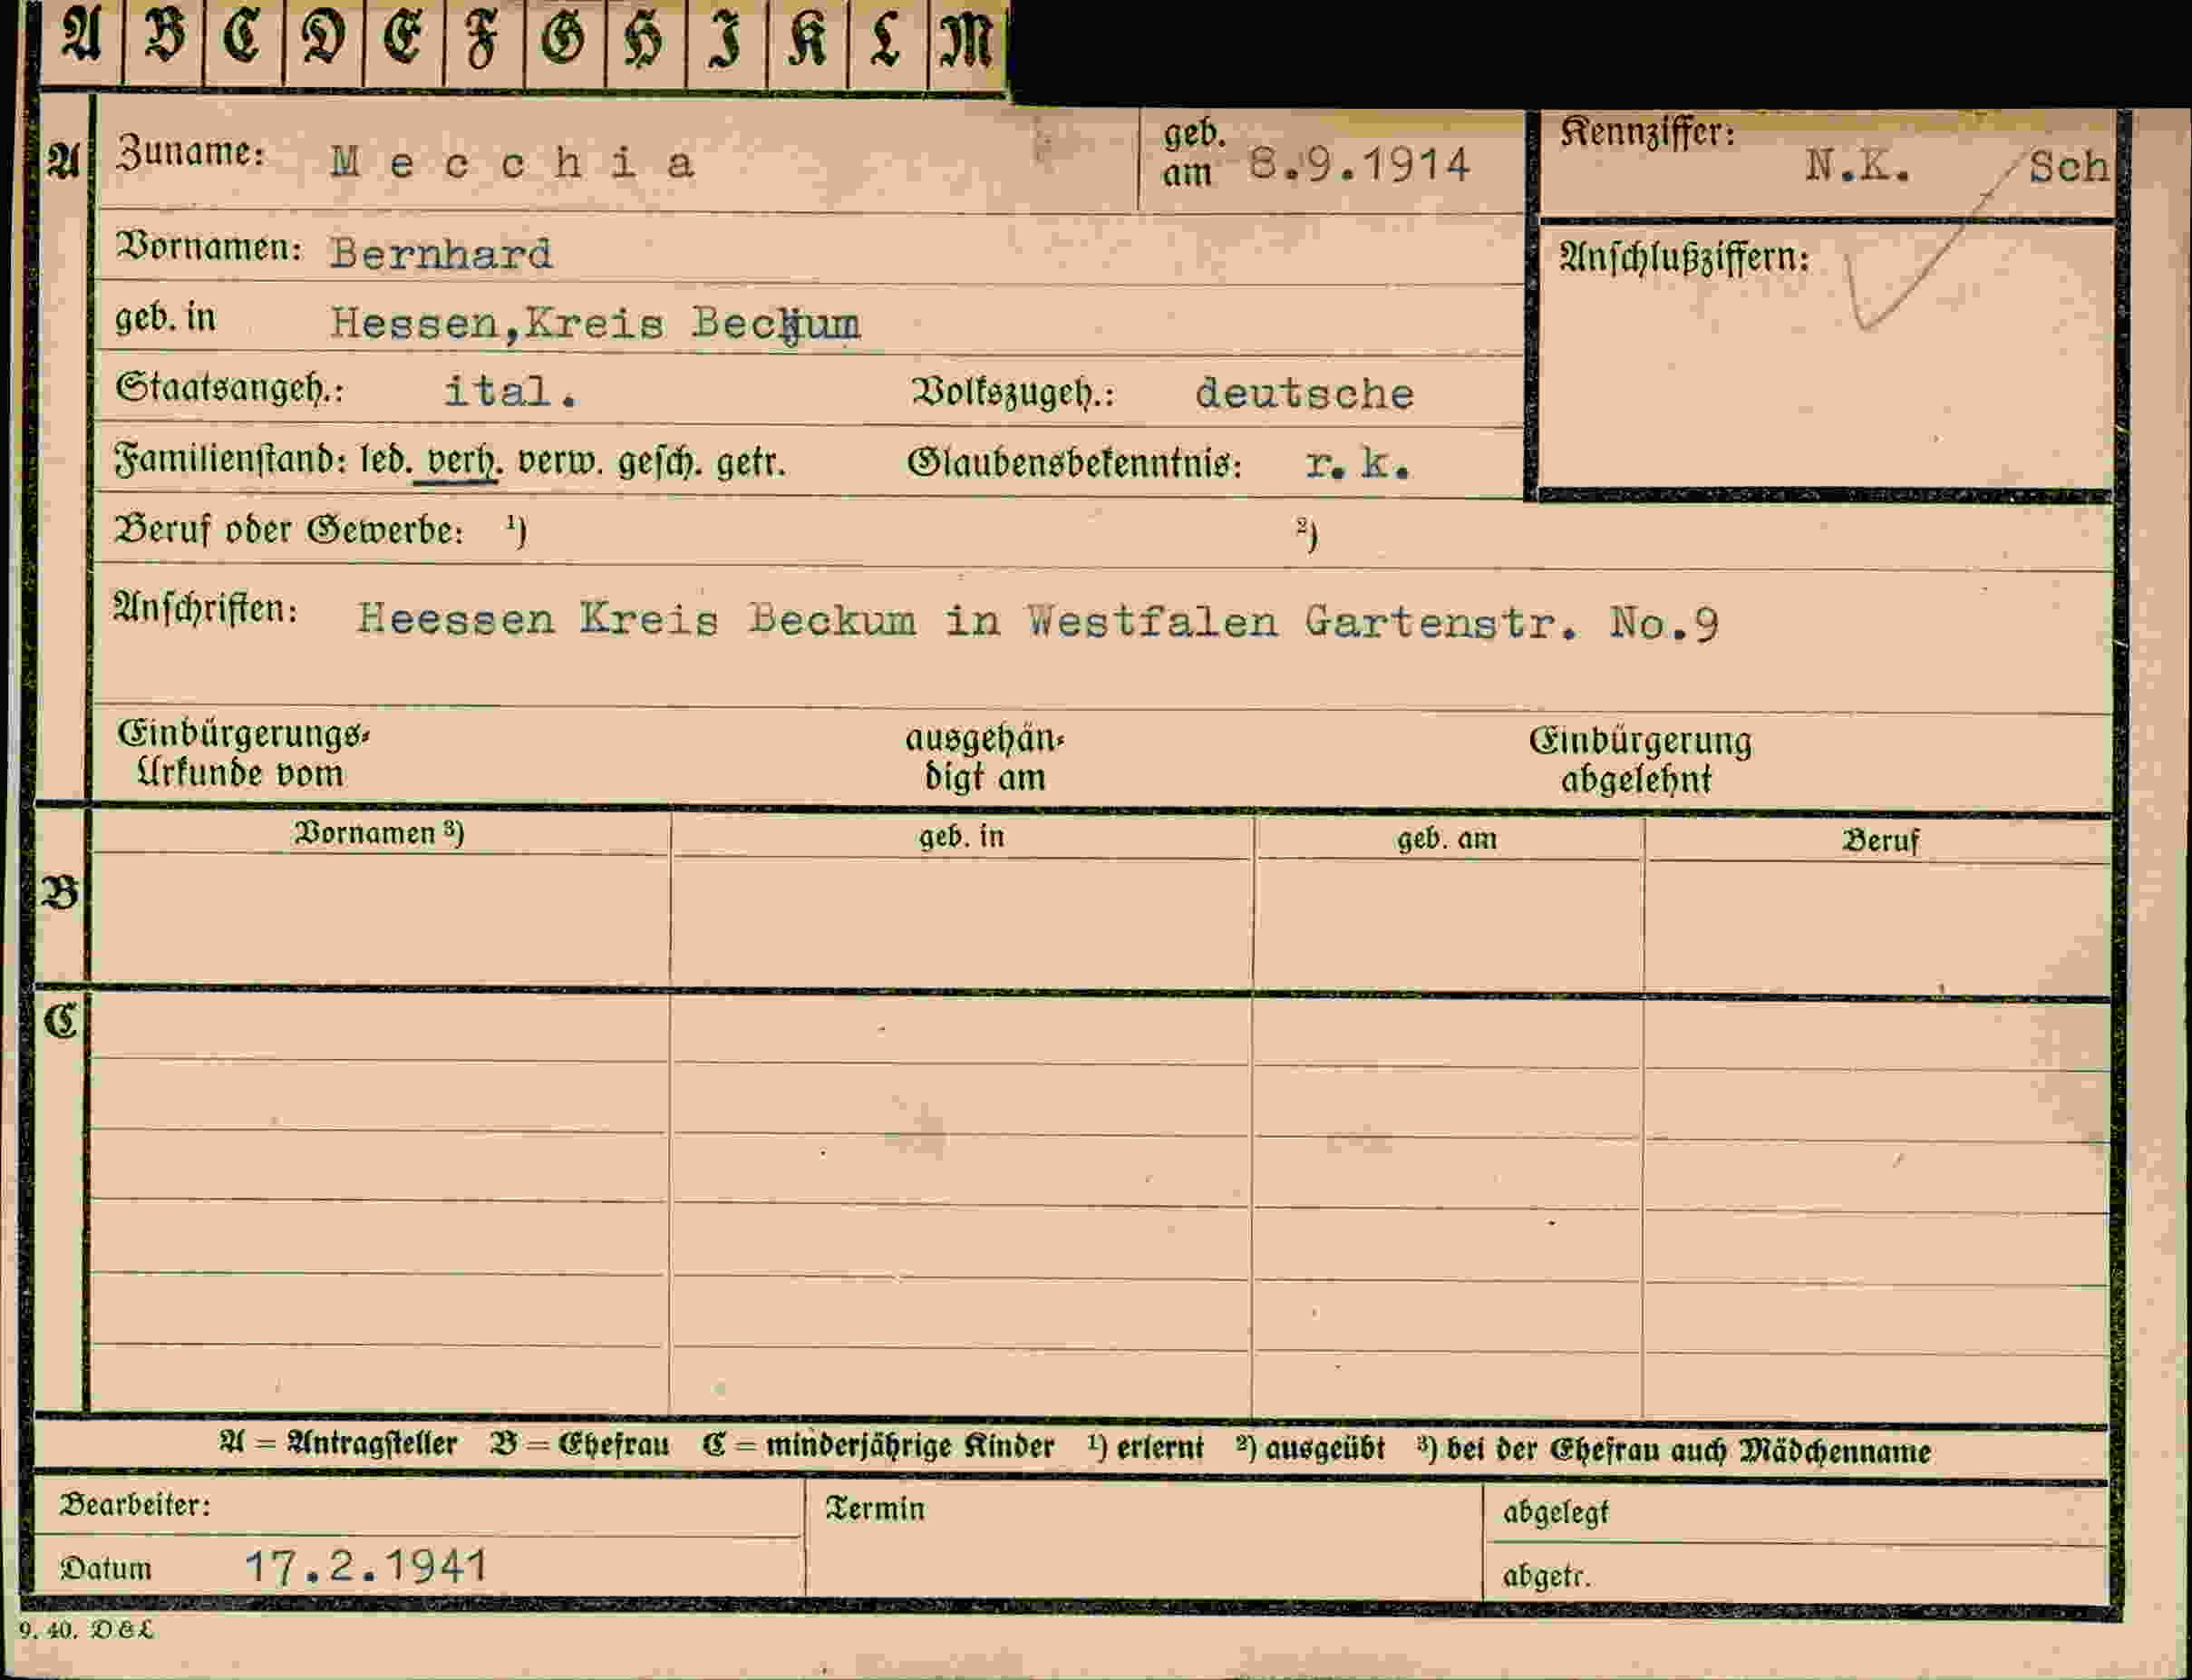 A B C D E F G H I K L M
A Zuname: Mecchia geb. am 8.9.1914 Kennziffer: N.K. Sch
Vornamen: Bernhard
Anschlußziffern:
geb. in Hessen,Kreis Beckum
Staatsangeh.: ital. Volkszugeh.: deutsche
Familienstand: led. verh. verw. gesch. getr. Glaubensbekenntnis: r. k.
Beruf oder Gewerbe: ¹) ²)
Anschriften: Heessen Kreis Beckum in Westfalen Gartenstr. No.9
Einbürgerungs- ausgehän- Einbürgerung
Urkunde vom digt am abgelehnt
Vornamen ³) geb. in geb. am Beruf
B
C
A = Antragsteller B = Ehefrau C = minderjährige Kinder ¹) erlernt ²) ausgeübt ³) bei der Ehefrau auch Mädchenname
Bearbeiter: Termin abgelegt
Datum 17.2.1941 abgetr.
9. 40. D & L